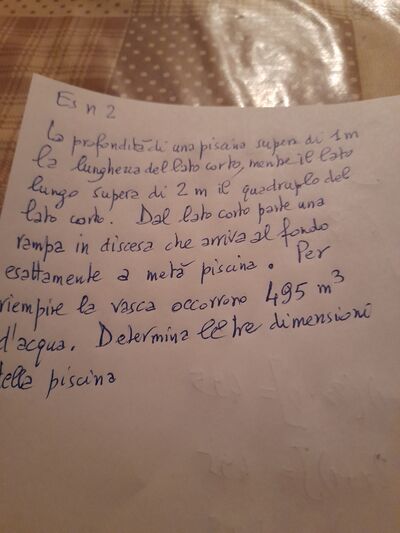 Es n 2
La profondità di una piscina supera di 1m
la lunghezza del lato corto, mentre il lato
lungo supera di 2 m il quadruplo del
lato corto. Dal lato corto parte una
rampa in discesa che arriva al fondo
esattamente a metà piscina. Per
riempire la vasca occorrono 495 m³
d'acqua. Determina le tre dimensioni
della piscina